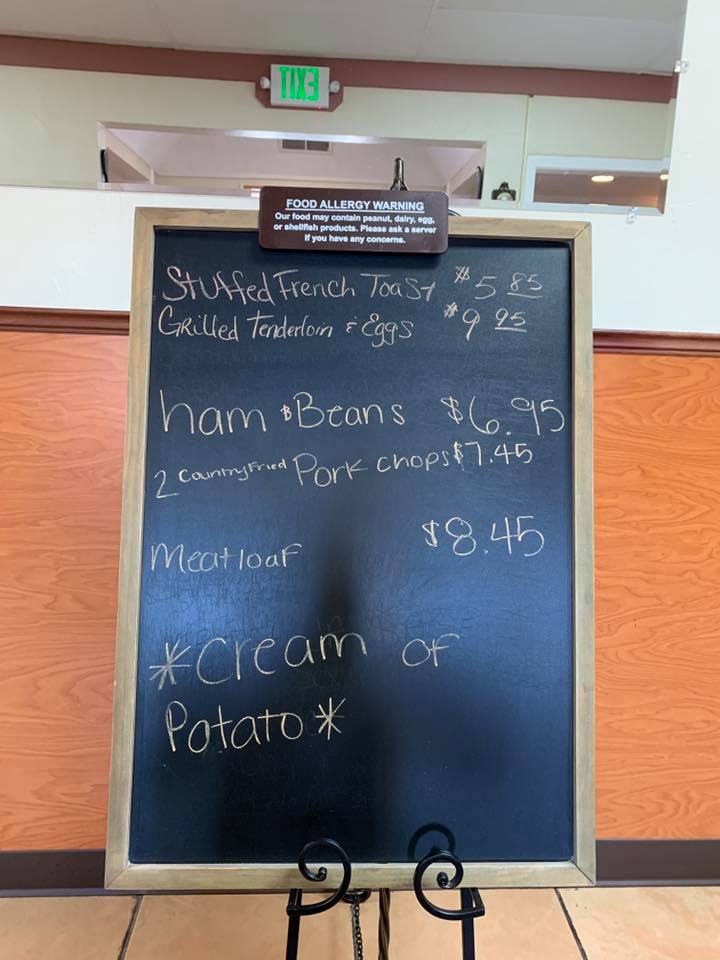 EXIT
FOOD ALLERGY WARNING
Our food may contain peanut, dairy, egg,
or shellfish products. Please ask a server
if you have any concerns.
Stuffed French Toast $5 85
Grilled Tenderloin & Eggs $9 95
ham & Beans $6.95
2 Country Fried Pork Chops $7.45
Meatloaf $8.45
*Cream of
Potato*